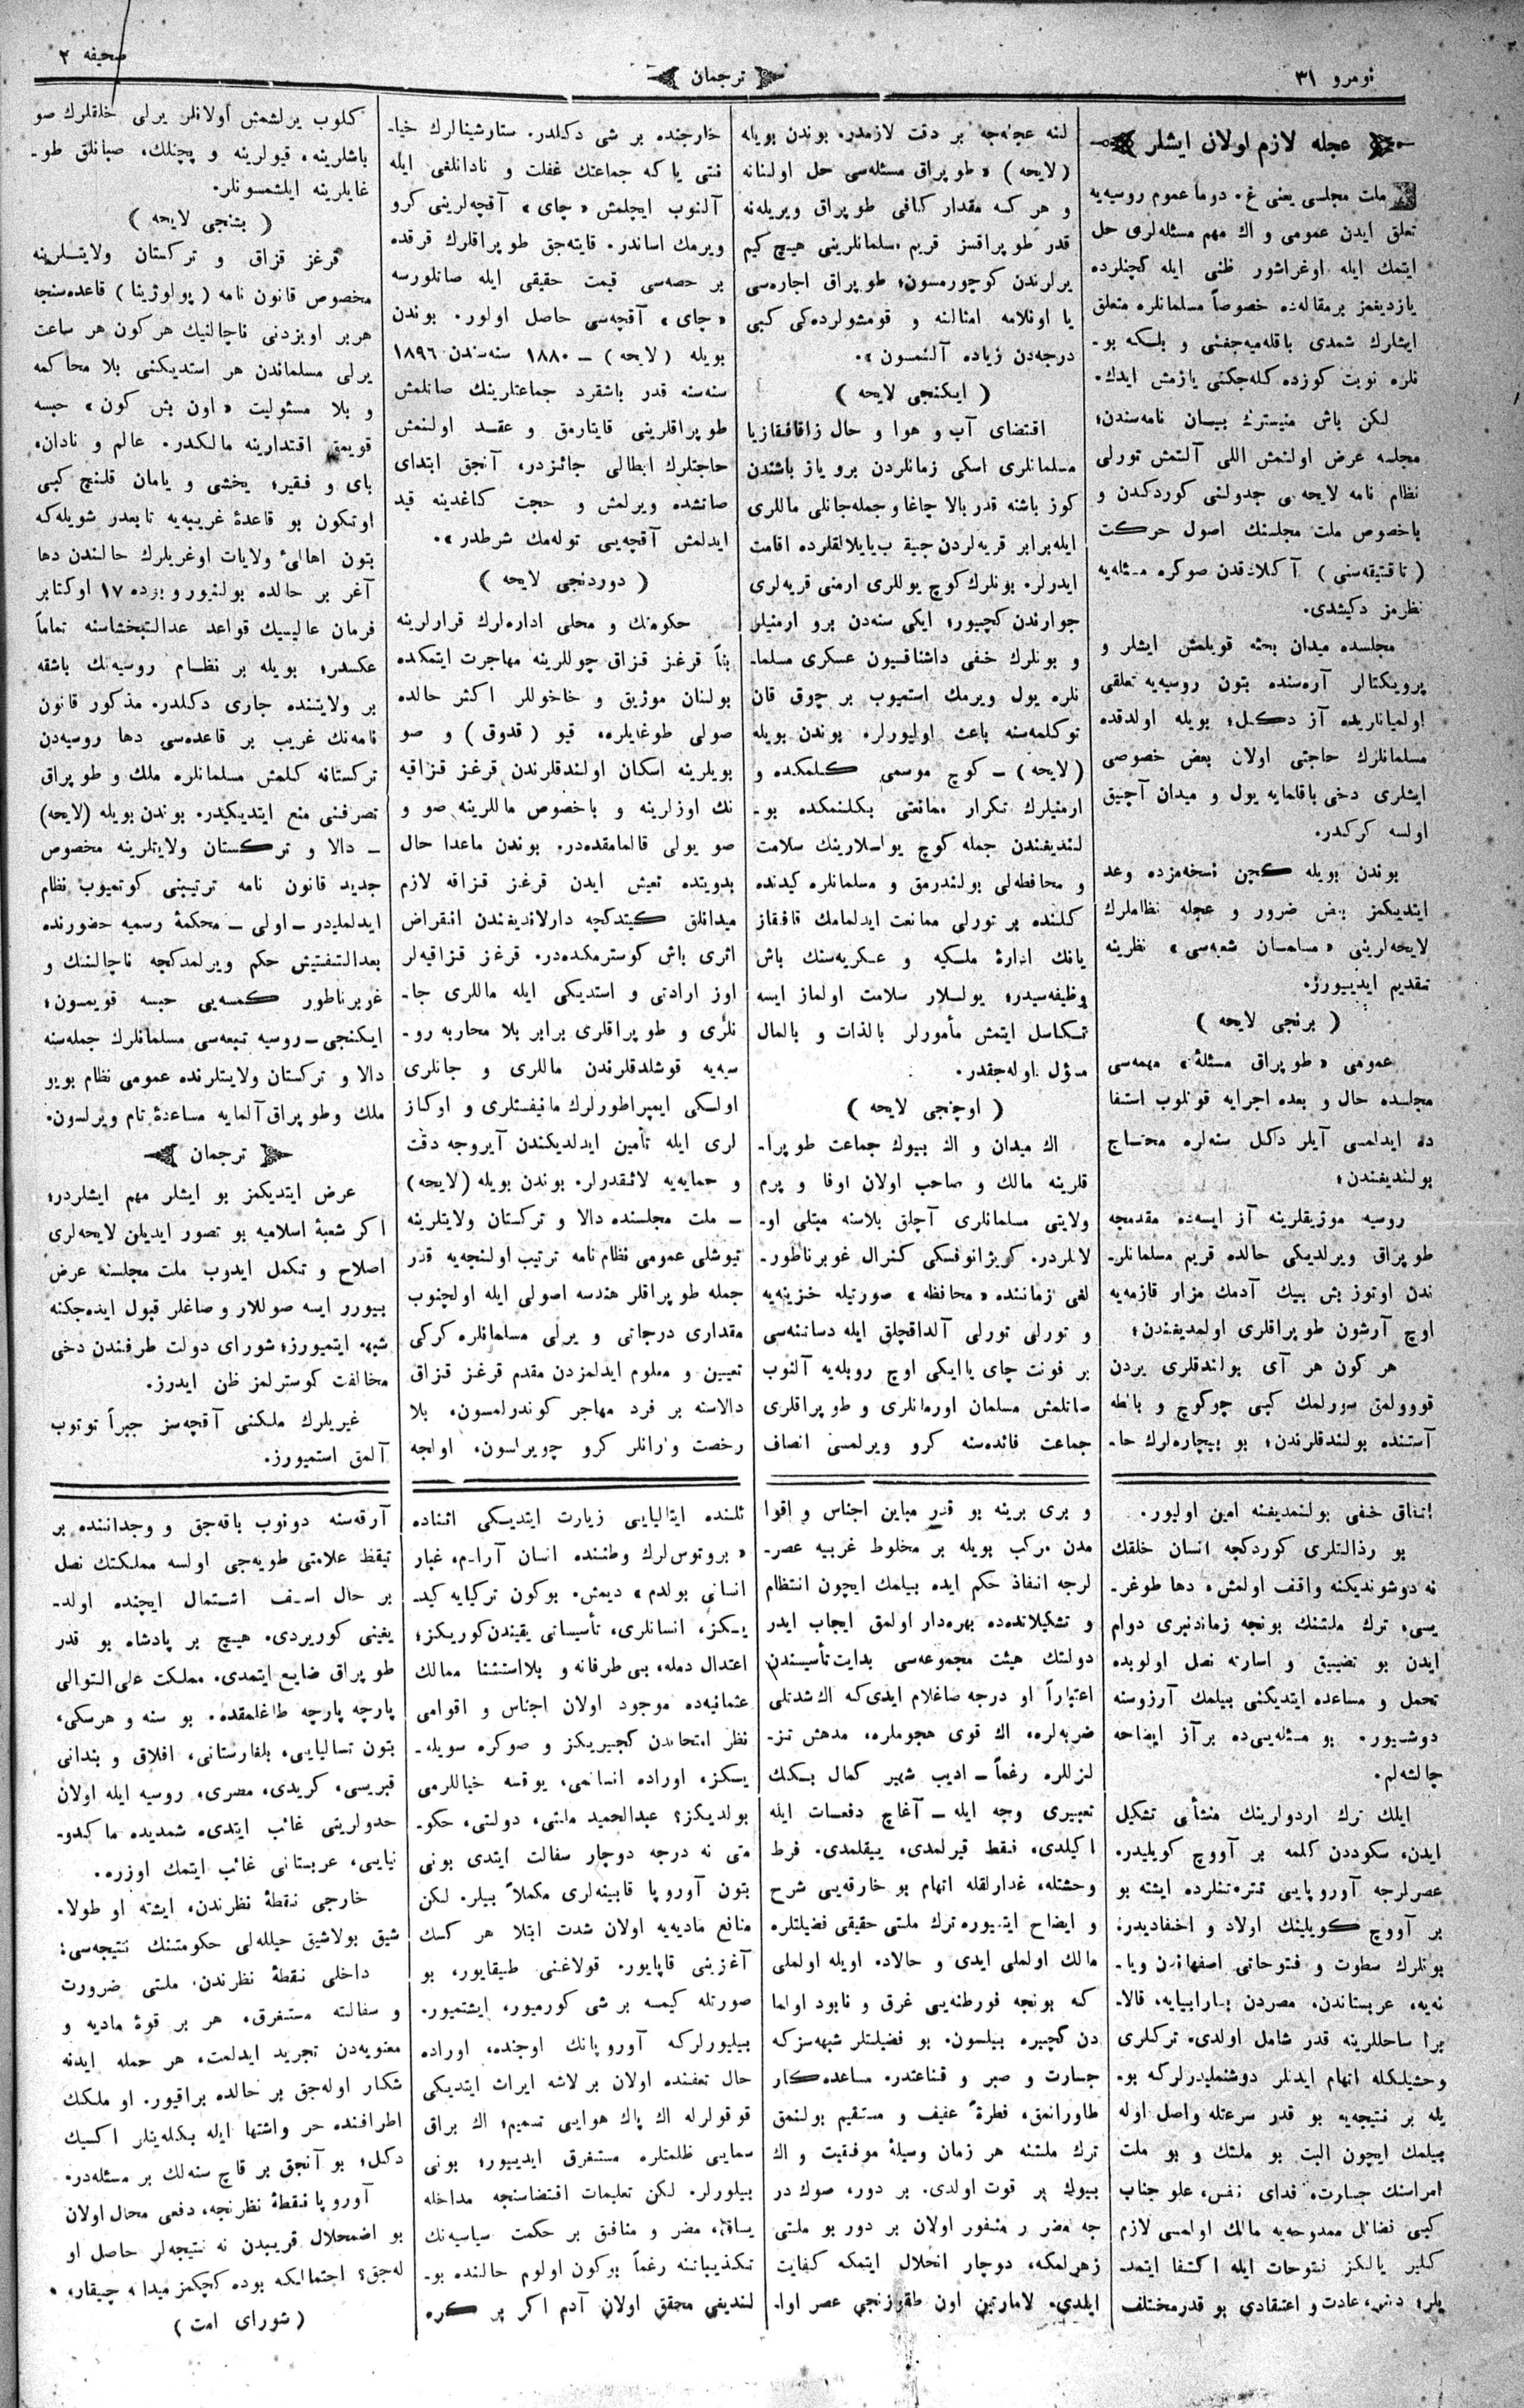 نومرو ٣١
ترجمان
صحيفه ٢
عجله لازم اولان ايشلر
ملت مجلسى يعنى غ. دوما عموم روسيه‌يه
تعلق ايدن عمومى و اك مهم مسئله‌لرى حل
ايتمك ايله اوغراشور ظنى ايله كچنلرده
يازديغمز برمقاله‌ده خصوصاً مسلمانلره متعلق
ايشلرك شمدى باقله‌ميه‌جغنى و بلكه بو-
نلره نوبت كوزده كله‌جكنى يازمش ايدك.
لكن باش منيسترك بيان نامه‌سندن؛
مجلسه عرض اولنمش اللى آلتمش تورلى
نظام نامه لايحه‌ى جدولنى كوردكدن و
باخصوص ملت مجلسنك اصول حركت
(تاقتيقه‌سنى) آكلادقدن صوكره مسئله‌يه
نظرمز دكيشدى.
مجلسده ميدان بحثه قويلمش ايشلر و
پرويكتالر آره‌سنده بتون روسيه‌يه تعلقى
اولميانلريده آز دكل؛ بويله اولدقده
مسلمانلرك حاجتى اولان بعض خصوصى
ايشلرى دخى باقلمايه يول و ميدان آچيق
اولسه كركدر.
بوندن بويله كچن نسخه‌مزده وعد
ايتديكمز بعض ضرور و عجله نظاملرك
لايحه‌لرينى «مسلمان شعبه‌سى» نظرينه
تقديم ايدييورز.
(برنجى لايحه)
عمومى «طوپراق مسئلۀ» مهمه‌سى
مجلسده حال و بعده اجرايه قونلوب استفا
ده ايدلمسى آيلر دكل سنه‌لره محتاج
بولنديغندن؛
روسيه موزيقلرينه آز ايسه‌ده مقدمجه
طوپراق ويرلديكى حالده قريم مسلمانلر-
ندن اوتوز بش بيك آدمك مزار قازمه‌يه
اوچ آرشون طوپراقلرى اولمديغندن؛
هر كون هر آى بولندقلرى يردن
قووولمق سورلمك كبى چركوچ و بالطه
آستنده بولندقلرندن؛ بو بيچاره‌لرك حا-
لنه عجله‌جه بر دقت لازمدر. بوندن بويله
(لايحه) «طوپراق مسئله‌سى حل اولننانه
و هر كسه مقدار كافى طوپراق ويريله‌نه
قدر طوپراقسز قريم مسلمانلرينى هيچ كيم
يرلرندن كوچورمسون؛ طوپراق اجاره‌سى
يا اوقلامه امثالنه و قومشولرده‌كى كبى
درجه‌دن زياده آلنمسون».
(ايكنجى لايحه)
اقتضاى آب و هوا و حال زاقافقازيا
مسلمانلرى اسكى زمانلردن برو ياز باشندن
كوز باشنه قدر بالا چاغا و جمله‌جانلى ماللرى
ايله‌برابر قريه‌لردن چيقب يايلالقلرده اقامت
ايدرلر. بونلرك كوچ يوللرى ارمنى قريه‌لرى
جوارندن كچيور؛ ايكى سنه‌دن برو ارمنيلر
و بونلرك خفى داشناقسيون عسكرى مسلما-
نلره يول ويرمك استميوب بر چوق قان
توكلمه‌سنه باعث اوليورلر. بوندن بويله
(لايحه) – كوچ موسمى كلمكده و
ارمنيلرك تكرار ممانعتى بكلنمكده بو-
لنديغندن جمله كوچ يوللرينك سلامت
و محافظه‌لى بولندرمق و مسلمانلره كيدنده
كلنده بر تورلى ممانعت ايدلمامك قافقاز
يانك ادارۀ ملكيه و عسكريه‌سنك باش
وظيفه‌سيدر؛ يوللر سلامت اولماز ايسه
تكاسل ايتمش مأمورلر بالذات و بالمال
مسؤل اوله‌جقدر.
(اوچنجى لايحه)
اك ميدان و اك بيوك جماعت طوپرا-
قلرينه مالك و صاحب اولان اوفا و پرم
ولايتى مسلمانلرى آچلق بلاسنه مبتلى او-
لانلردر. كريژانوفسكى كنرال غوبرناطور-
لغى زماننده «محافظه» صورتيله خزينه‌يه
و تورلى تورلى آلداقچلق ايله دساننه‌سى
بر فونت چاى ياايكى اوچ روبله‌يه آلنوب
صاتلمش مسلمان اورمانلرى و طوپراقلرى
جماعت فائده‌سنه كرو ويرلمسى انصاف
خارجنده بر شى دكلدر. ستارشينالرك خيا-
نتى يا كه جماعتك غفلت و نادانلغى ايله
آلنوب ايچلمش «چاى» آقچه‌لرينى كرو
ويرمك اساندر. قايته‌جق طوپراقلرك قرقده
بر حصه‌سى قيمت حقيقى ايله صانلورسه
«چاى» آقچه‌سى حاصل اولور. بوندن
بويله (لايحه) – ١٨٨٠ سنه‌سندن ١٨٩٦
سنه‌سنه قدر باشقرد جماعتلرينك صاتلمش
طوپراقلرينى قايتارمق و عقد اولنمش
حاجتلرك ابطالى جائزدر، آنجق ابتداى
صاتشده ويرلمش و حجت كاغدينه قيد
ايدلمش آقچه‌يى توله‌مك شرطدر».
(دوردنجى لايحه)
حكومتك و محلى اداره‌لرك قرارلرينه
بناً قرغز قزاق چوللرينه مهاجرت ايتمكده
بولنان موژيق و خاخوللر اكثر حالده
صولى طوغايلره، قيو (قدوق) و صو
بويلرينه اسكان اولندقلرندن قرغز قزاقيه
نك اوزلرينه و باخصوص ماللرينه صو و
صو يولى قالمامقده‌در. بوندن ماعدا حال
بدويتده تعيش ايدن قرغز قزاقه لازم
ميدانلق كيتدكچه دارلانديغندن انقراض
اثرى باش كوسترمكده‌در. قرغز قزاقيه‌لر
اوز ارادتى و استديكى ايله ماللرى جا-
نلرى و طوپراقلرى برابر بلا محاربه رو-
سيه‌يه قوشلدقلرندن ماللرى و جانلرى
اولسكى ايمپراطورلرك مانيفستلرى و اوكاز
لرى ايله تأمين ايدلديكندن آيروجه دقت
و حمايه‌يه لائقدرلر. بوندن بويله (لايحه)
– ملت مجلسنده دالا و تركستان ولايتلرينه
تيوشلى عمومى نظام نامه ترتيب اولنجه‌يه قدر
جمله طوپراقلر هندسه اصولى ايله اولچنوب
مقدارى درجاتى و يرلى مسلمانلره كركى
تعيين و معلوم ايدلمزدن مقدم قرغز قزاق
دالاسنه بر فرد مهاجر كوندرلمسون، بلا
رخصت وارانلر كرو چويرلسون، اولجه
كلوب يرلشمش اولانلر يرلى خلقلرك صو
باشلرينه، قيولرينه و پچنلك، صبانلق طو-
غايلرينه ايلشمسونلر.
(بشنجى لايحه)
قرغز قزاق و تركستان ولايتلرينه
مخصوص قانون نامه (پولوژينا) قاعده‌سنجه
هربر اويزدنى ناچالنيك هر كون هر ساعت
يرلى مسلماندن هر استديكنى بلا محاكمه
و بلا مسئوليت «اون بش كون» حبسه
قويمق اقتدارينه مالكدر. عالم و نادان،
باى و فقير؛ يخشى و يامان قلنچ كبى
اوتكون بو قاعدۀ غريبه‌يه تابعدر شويله‌كه
بتون اهالئ ولايات اوغريلرك حالندن دها
آغر بر حالده بولنيور و بزده ١٧ اوكتابر
فرمان عاليسيك قواعد عدالتبخشاسنه تماماً
عكسدر؛ بويله بر نظام روسيه‌نك باشقه
بر ولايتنده جارى دكلدر. مذكور قانون
نامه‌نك غريب بر قاعده‌سى دها روسيه‌دن
تركستانه كلمش مسلمانلره ملك و طوپراق
تصرفنى منع ايتديكيدر. بوندن بويله (لايحه)
– دالا و تركستان ولايتلرينه مخصوص
جديد قانون نامه ترتيبنى كوتميوب نظام
ايدلمليدر – اولى – محكمۀ رسميه حضورنده
بعدالتفتيش حكم ويرلمدكجه ناچالنك و
غوبرناطور كمسه‌يى حبسه قويمسون؛
ايكنجى – روسيه تبعه‌سى مسلمانلرك جمله‌سنه
دالا و تركستان ولايتلرنده عمومى نظام بويو
ملك وطوپراق آلمايه مساعدۀ تام ويرلسون.
ترجمان
عرض ايتديكمز بو ايشلر مهم ايشلردر؛
اكر شعبۀ اسلاميه بو تصور ايديلن لايحه‌لرى
اصلاح و تكمل ايدوب ملت مجلسنه عرض
بيورر ايسه صوللار و صاغلر قبول ايده‌جكنه
شبهه ايتميورز؛ شوراى دولت طرفندن دخى
مخالفت كوسترلمز ظن ايدرز.
غيريلرك ملكنى آقچه‌سز جبراً توتوب
آلمق استميورز.
اتفاق خفى بولنمديغنه امين اوليور.
بو رذالتلرى كوردكجه انسان خلقك
نه دوشونديكنه واقف اولمش، دها طوغر-
يسى، ترك ملتنك بونجه زماندنبرى دوام
ايدن بو تضييق و اسارته نصل اولوبده
تحمل و مساعده ايتديكنى بيلمك آرزوسنه
دوشيور. بو مسئله‌يى‌ده برآز ايضاحه
چالشه‌لم.
ايلك ترك اردولرينك منشأى تشكيل
ايدن، سكوددن كلمه بر آووچ كويليدر.
عصرلرجه آوروپايى تتره‌تنلرده ايشته بو
بر آووچ كويلينك اولاد و احفاديدر؛
بونلرك سطوت و فتوحاتى اصفهاندن ويا-
نه‌يه، عربستاندن، مصردن بارابيايه، قالا-
برا ساحللرينه قدر شامل اولدى. تركلرى
وحشيلكله اتهام ايدنلر دوشنمليدرلركه بو-
يله بر نتيجه‌يه بو قدر سرعتله واصل اوله
بيلمك ايچون البت بو ملتك و بو ملت
امراسنك جسارت، فداى نفس، علو جناب
كبى فضائل ممدوحه‌يه مالك اولمسى لازم
كلير يالكز فتوحات ايله اكتفا ايتمد-
يلر؛ دنى، عادت و اعتقادى بو قدرمختلف
و برى برينه بو قدر مباين اجناس و اقوا
مدن مركب بويله بر مخلوط غريبيه عصر-
لرجه انفاذ حكم ايده بيلمك ايچون انتظام
و تشكيلاتده‌ده بهره‌دار اولمق ايجاب ايدر
دولتك هيئت مجموعه‌سى بدايت تأسيسندن
اعتباراً او درجه صاغلام ايدى‌كه اك شدتلى
ضربه‌لره، اك قوى هجوملره، مدهش تز-
لزللره رغماً – اديب شهير كمال بكك
تعبيرى وجه ايله – آغاچ دفعات ايله
اكيلدى، فقط قيرلمدى، ييقلمدى. فرط
وحشتله، غدارلقله اتهام بو خارقه‌يى شرح
و ايضاح ايتميور، ترك ملتى حقيقى فضيلتلره
مالك اولملى ايدى و حالاد. اويله اولملى
كه بونجه فورطنه‌يى غرق و نابود اولما
دن كچيره بيلسون. بو فضيلتلر شبهه‌سزكه
جسارت و صبر و قناعتدر. مساعده‌كار
طاورانمق، فطرةً عفيف و مستقيم بولنمق
ترك ملتنه هر زمان وسيلۀ موفقيت و اك
بيوك بر قوت اولدى. بر دور، صوك در
جه مضر و منفور اولان بر دور بو ملتى
زهرلمكه، دوچار انحلال ايتمكه كفايت
ايلدى. لامارتين اون طقوزنجى عصر اوا-
ئلنده ايتاليايى زيارت ايتديكى اثناده
«بروتوس‌لرك وطننده انسان آرادم، غبار
انسانى بولدم» ديمش. بوكون تركيايه كيد-
يكز، انسانلرى، تأسيساتى يقيندن كوريكز؛
اعتدال دمله، بى طرفانه و بلااستثنا ممالك
عثمانيه‌ده موجود اولان اجناس و اقوامى
نظر امتحاندن كچيريكز و صوكره سويله-
يكز، اوراده انسانمى، يوقسه خياللرمى
بولديكز؟ عبدالحميد ملتى، دولتى، حكو-
متى نه درجه دوچار سفالت ايتدى بونى
بتون آوروپا قابينه‌لرى مكملاً بيلر. لكن
منافع ماديه‌يه اولان شدت ابتلا هر كسك
آغزينى قاپايور. قولاغنى طيقايور، بو
صورتله كيمسه بر شى كورميور، ايشتميور.
بيليورلركه آوروپانك اوجنده، اوراده
حال تعفنده اولان بر لاشه ايراث ايتديكى
قوقولرله اك پاك هوايى تسميم؛ اك براق
سمايى ظلمتلره مستغرق ايدييور؛ بونى
بيلورلر. لكن تعليمات اقتضاسنجه مداخله
يساق، مضر و منافق بر حكمت سياسيه‌نك
تكذيباتنه رغماً بوكون اولوم حالنده بو-
لنديغى محقق اولان آدم اكر بر كره
آرقه‌سنه دونوب باقه‌جق و وجداننده بر
تيقظ علامتى طويه‌جى اولسه مملكتك نصل
بر حال اسف اشتمال ايچنده اولد-
يغينى كوريردى. هيچ بر پادشاه بو قدر
طوپراق ضايع ايتمدى. مملكت على التوالى
پارچه پارچه طاغلمقده. بو سنه و هرسكى،
بتون تساليايى، بلغارستانى، افلاق و بغدانى
قبريسى، كريدى، مصرى، روسيه ايله اولان
حدولرينى غائب ايتدى، شمديده ماكدو-
نيايى، عربستانى غائب ايتمك اوزره.
خارجى نقطۀ نظرندن، ايشته او طولا-
شيق بولاشيق حيله‌لى حكومتنك نتيجه‌سى؛
داخلى نقطۀ نظرندن، ملتى ضرورت
و سفالته مستغرق، هر بر قوۀ ماديه و
معنويه‌دن تجريد ايدلمت، هر حمله ايدنه
شكار اوله‌جق بر حالده براقيور. او ملكك
اطرافنده حر واشتها ايله بكله‌ينلر اكسيك
دكل؛ بو آنجق بر قاچ سنه‌لك بر مسئله‌در.
آوروپا نقطۀ نظرنجه، دفعى محال اولان
بو اضمحلال قريبدن نه نتيجه‌لر حاصل او
له‌جق؟ احتمالكه بوده كچكمز ميدانه چيقار.
(شوراى امت)